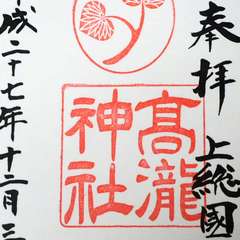 奉拝 上総國
高瀧
神社
成二十七年十二月三